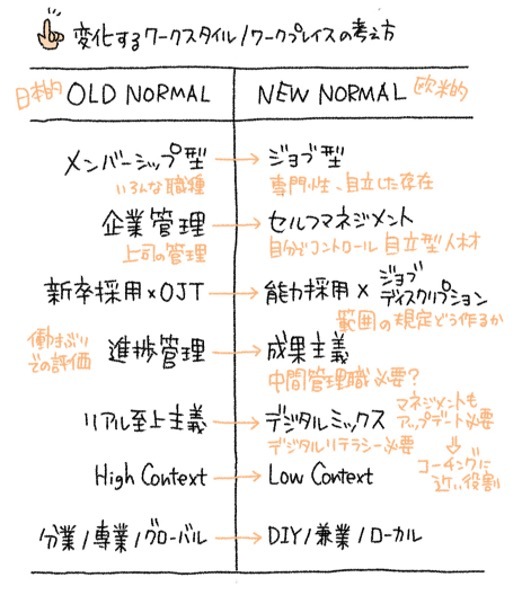 変化するワークスタイル/ワークプレイスの考え方
日本的 OLD NORMAL
NEW NORMAL 欧米的
メンバーシップ型 → ジョブ型
いろんな職種
専門性、自立した存在
企業管理 → セルフマネジメント
上司の管理
自分でコントロール 自立型人材
新卒採用×OJT → 能力採用×ジョブ
ディスクリプション
範囲の規定どう作るか
働きぶり
での評価
進捗管理 → 成果主義
中間管理職必要?
リアル至上主義 → デジタルミックス
デジタルリテラシー必要
マネジメントも
アップデート必要
⇓
コーチングに
近い役割
High Context → Low Context
分業/専業/グローバル → DIY/兼業/ローカル